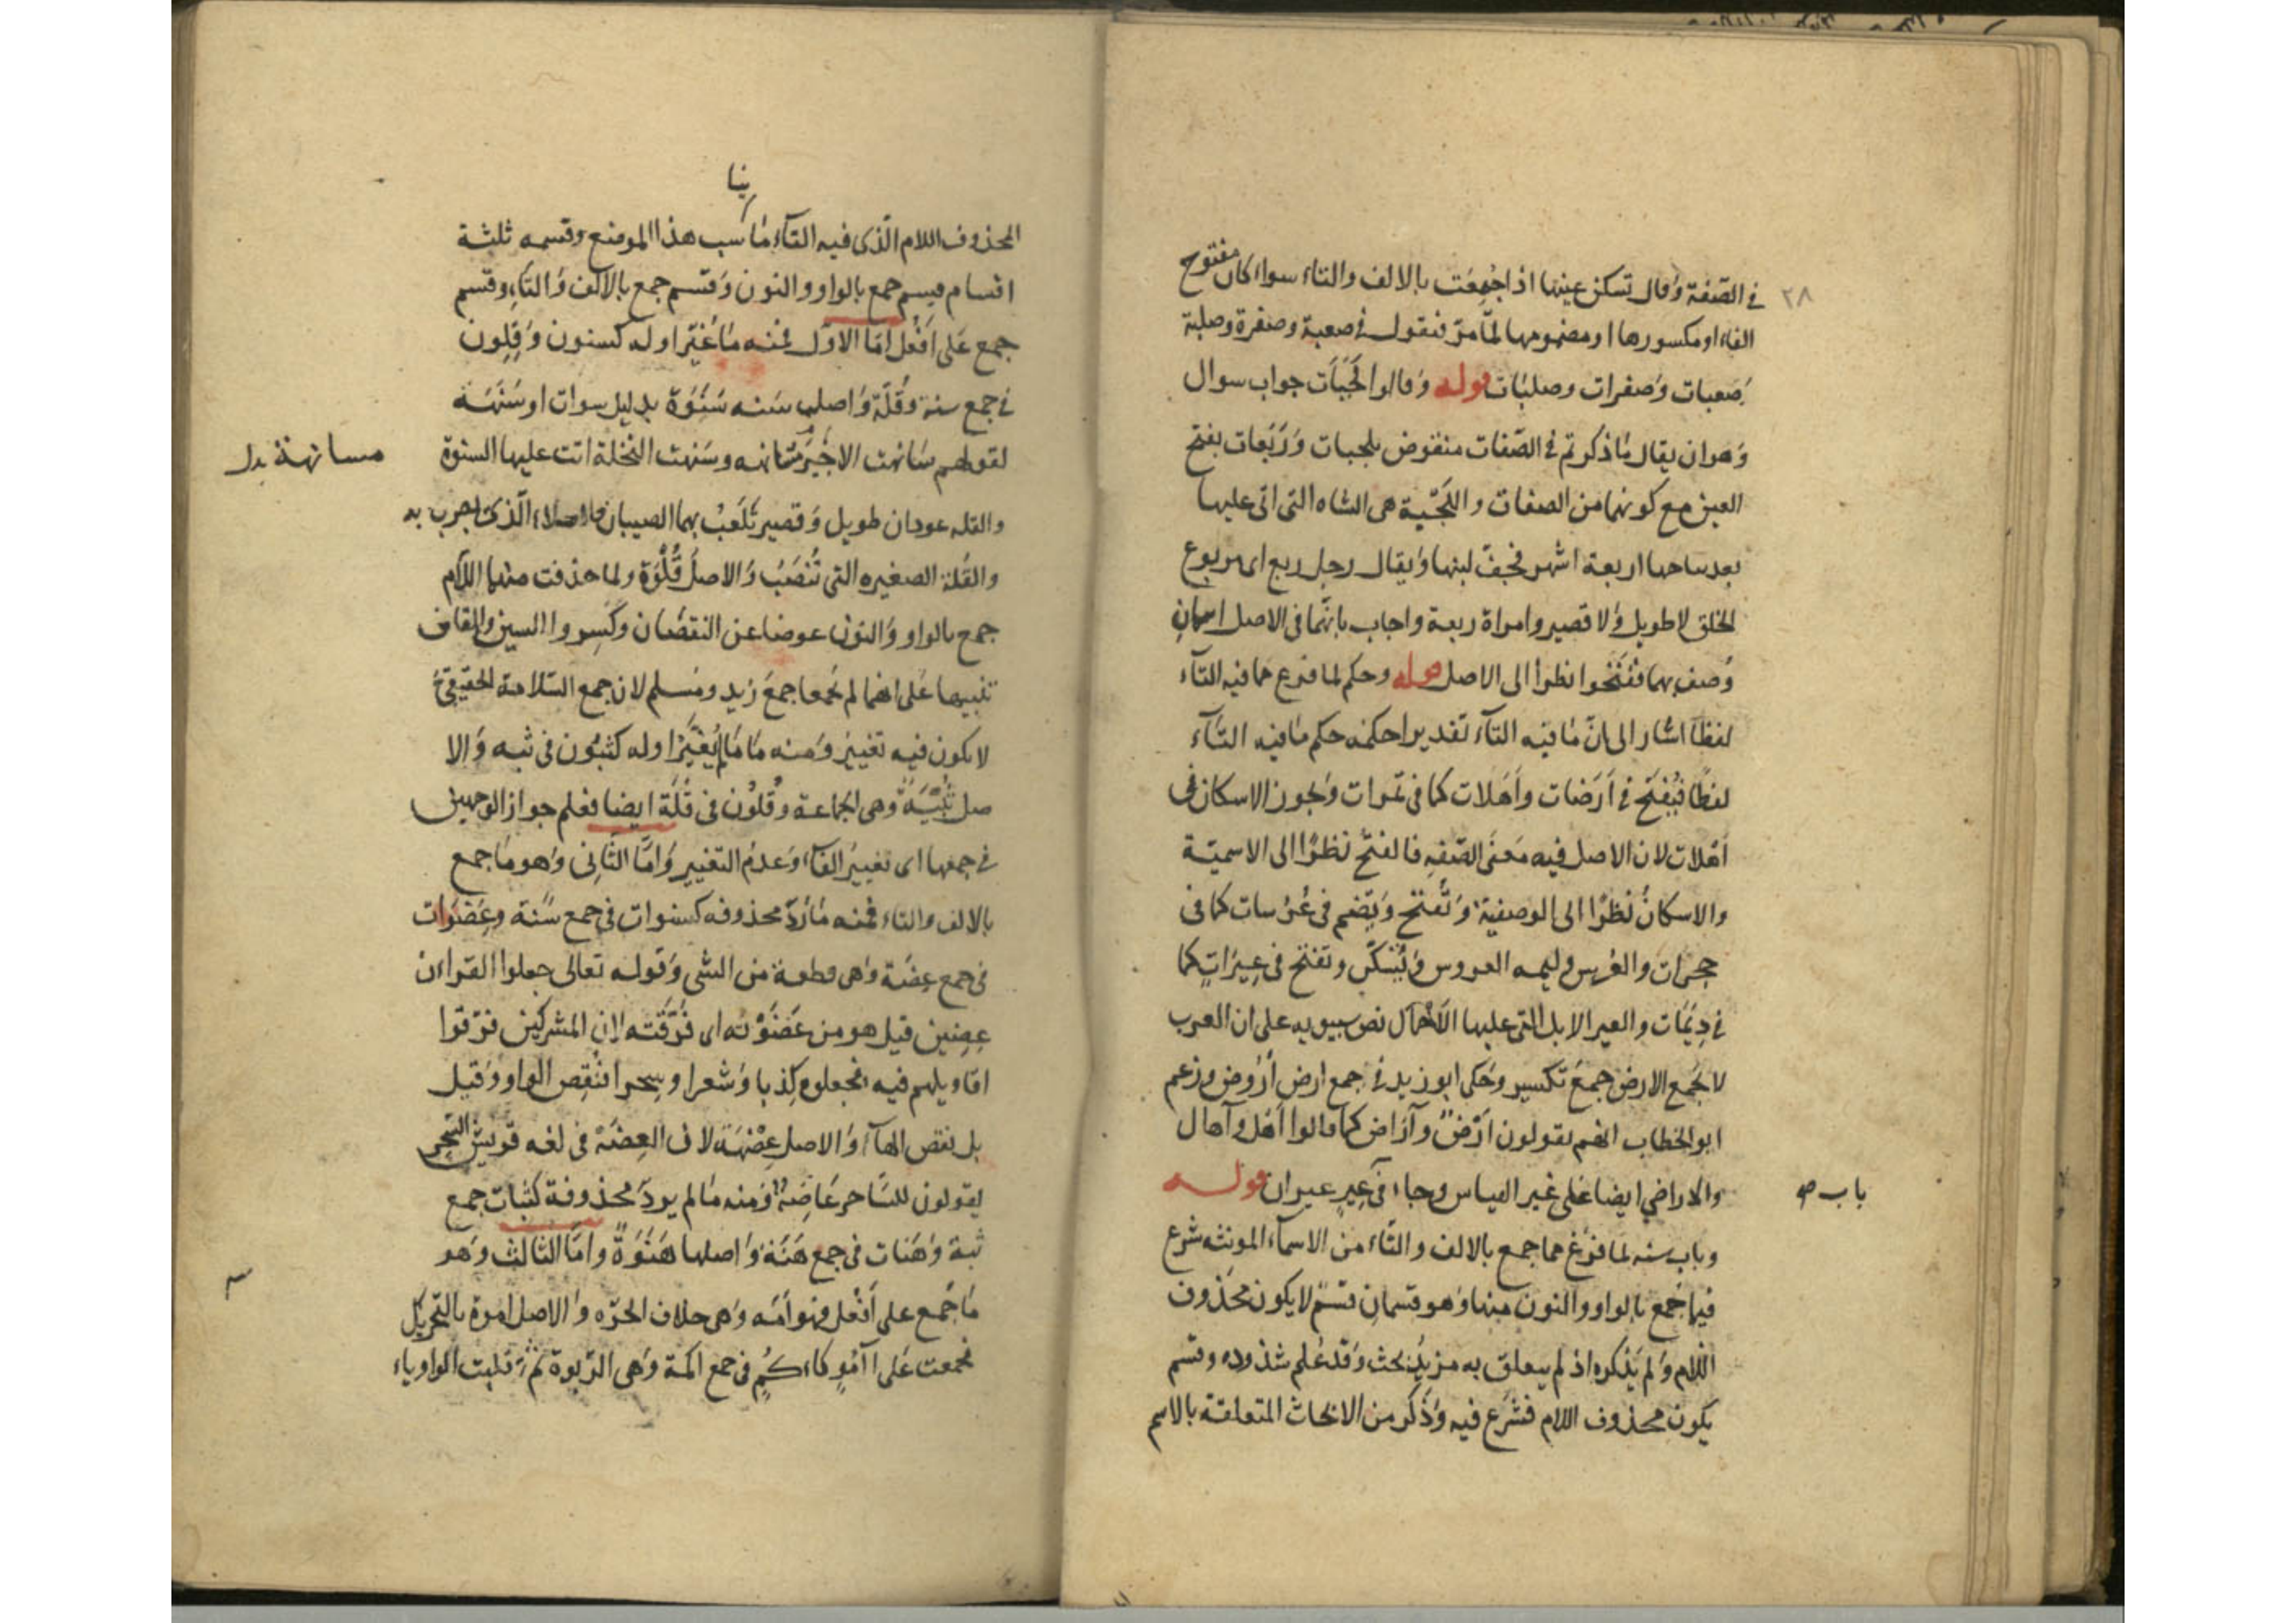 ٢٨
في الصّفة وقال تسكن عينها اذا جُمِعَت بالالف والتاء سواء كان مفتوح
الفاء او مكسورها او مضمومها لما مرّ فنقول في صعبة وصفرة وصلبة
صَعبات وَصفرات وصلبات قوله وَقالوا لَجَبَات جواب سوال
وَهو ان يقال مَا ذكرتم في الصّفات منقوض بلجبات وَرَبَعات بفتح
العين مع كونهما من الصفات واللَجبَة هى الشاه التى اتى عليها
بعد نتاجها اربعة اشهر فخفّ لبنها وَيقال رجل ربع اى مربوع
الخلق لا طويل وَلا قصير وامراة ربعة واجاب بانّهما في الاصل اسمانِ
وُصف بهما ففَتَحُوا نظرا الى الاصل قوله وحكم لما فرغ مما فيه التآء
لفظاً اشار الى انّ مَا فيه التآء تقديرا حكمه حكم مَا فيه التآء
لفظًا فيُفتَح في اَرَضات واَهَلات كما في تمَرات وَيجوز الاسكان في
اَهْلات لان الاصل فيه مَعنَى الصّفِه فالفتح نظرًا الى الاسميّة
والاسكانُ نظرًا الى الوصفية وَتُفتح وَيضم في عُرُسات كما في
حجرات والعُرس وليمه العروس وَتُسَكّن وتفتح في عِيَرَاتٍ كما
في دِيَمَات والعير الابل التى عليها الاَحْمال نص سيبويه على ان العرب
لا تجمَع الارض جمعَ تكسير وَحَكى ابو زيد في جمع ارض اُرُوض وزعم
ابو الخطاب انهم يقولون اَرْضٌ وآرَاض كما قالوا اَهْل وآهال
والاراضي ايضا عَلى غير القياس وجاء في عِيرٍ عيران قوله
باب صه
وباب سنه لما فرغ مما جمع بالالف والتَّاء من الاسماء المونثه شرع
فيما جُمع بالواو والنون منها وَهو قسمانِ قسمٌ لا يكون مَحذوف
اللام وَلم يَذكره اذ لم يتعلق به مزيدُ بَحث وَقد عُلم شذوذه وقسم
يكون محذوف اللام فشرَع فيه وَذَكر من الابحاث المتعلقة بالاسم
ينا
المحذوف اللام الّذى فيه التآء مَا سب هذا الموضع وقسمه ثلثة
اقسام قسم جمع بالواو والنون وَقسم جمع بالالف وَالتاءِ وقسم
جمع عَلى اَفْعُل امَّا الاوّل فمنه مَا غُيّرَ اوله كسنون وَقِلون
في جمع سنة وقُلَة وَاصلها سَنه سَنَوَة بدليل سوات او سَنَهَة
لقولهم سَانهت الاجيرَ مسَانهه وسَنهت النخلة اتت عليها السنوة
مسانهة بدل
والقله عودان طويل وَقصير تَلعَبُ بهما الصبيان الّذى يضرب به
والقُلة الصغيره التى تُنصَبُ وَالاصلُ قُلْوَة ولما حذفت منهما اللام
جمع بالواو وَالنون عوضا عن النقصَان وكَسِروا السين والقاف
تنبيها عَلى انهما لم يُجمعا جمعَ زيد ومُسلم لان جمع السّلامة الحقيقيّ
لا يكون فيه تغيير وَمنه مَا مَا لم يُغيَّر اوله كثبُون في ثبه وَالا
صل ثُبْيَةٌ وهى الجماعة وقُلُون في قُلَة ايضا فعلم جواز الوجهين
في جمعها اى تغييرُ الفآء وَعدمُ التغيير وَامَّا الثَّانِى وَهو مَا جمع
بالالف والتاء فمنه مَا رُدّ محذوفه كسنوات في جمع سَنة وعِضَوَات
في جمع عِضَة وَهى قطعة من الشى وَقوله تعالى جعلوا القرآن
عِضِين قيل هو من عَضَوْته اى فَرَّقتَه لان المشركين فرّقوا
اقاويلهم فيه فجعلوه كِذبا وَشعرا وسِحرا فنُقِص الواو وَقيل
بل نقص الهآء وَالاصل عِضْهَة لان العِضَهْ في لغه قريش السّحر
يقولون للسَّاحر عَاضِهٌ وَمنه مَا لم يردّ محذوفه كثبات جمع
ثبة وَهَنات في جمع هَنَة وَاصلها هَنَوَةٌ وامَّا الثالث وَهو
مَا جُمع على اَفْعُل فهو اَمَه وَهى خلاف الحرّه وَالاصل امَوة بالتحريك
فجمعت عَلى آمُوٍ كاءَكُمٍ في جمع اكمة وَهى الرّبوة ثم قلبت الواو ياء